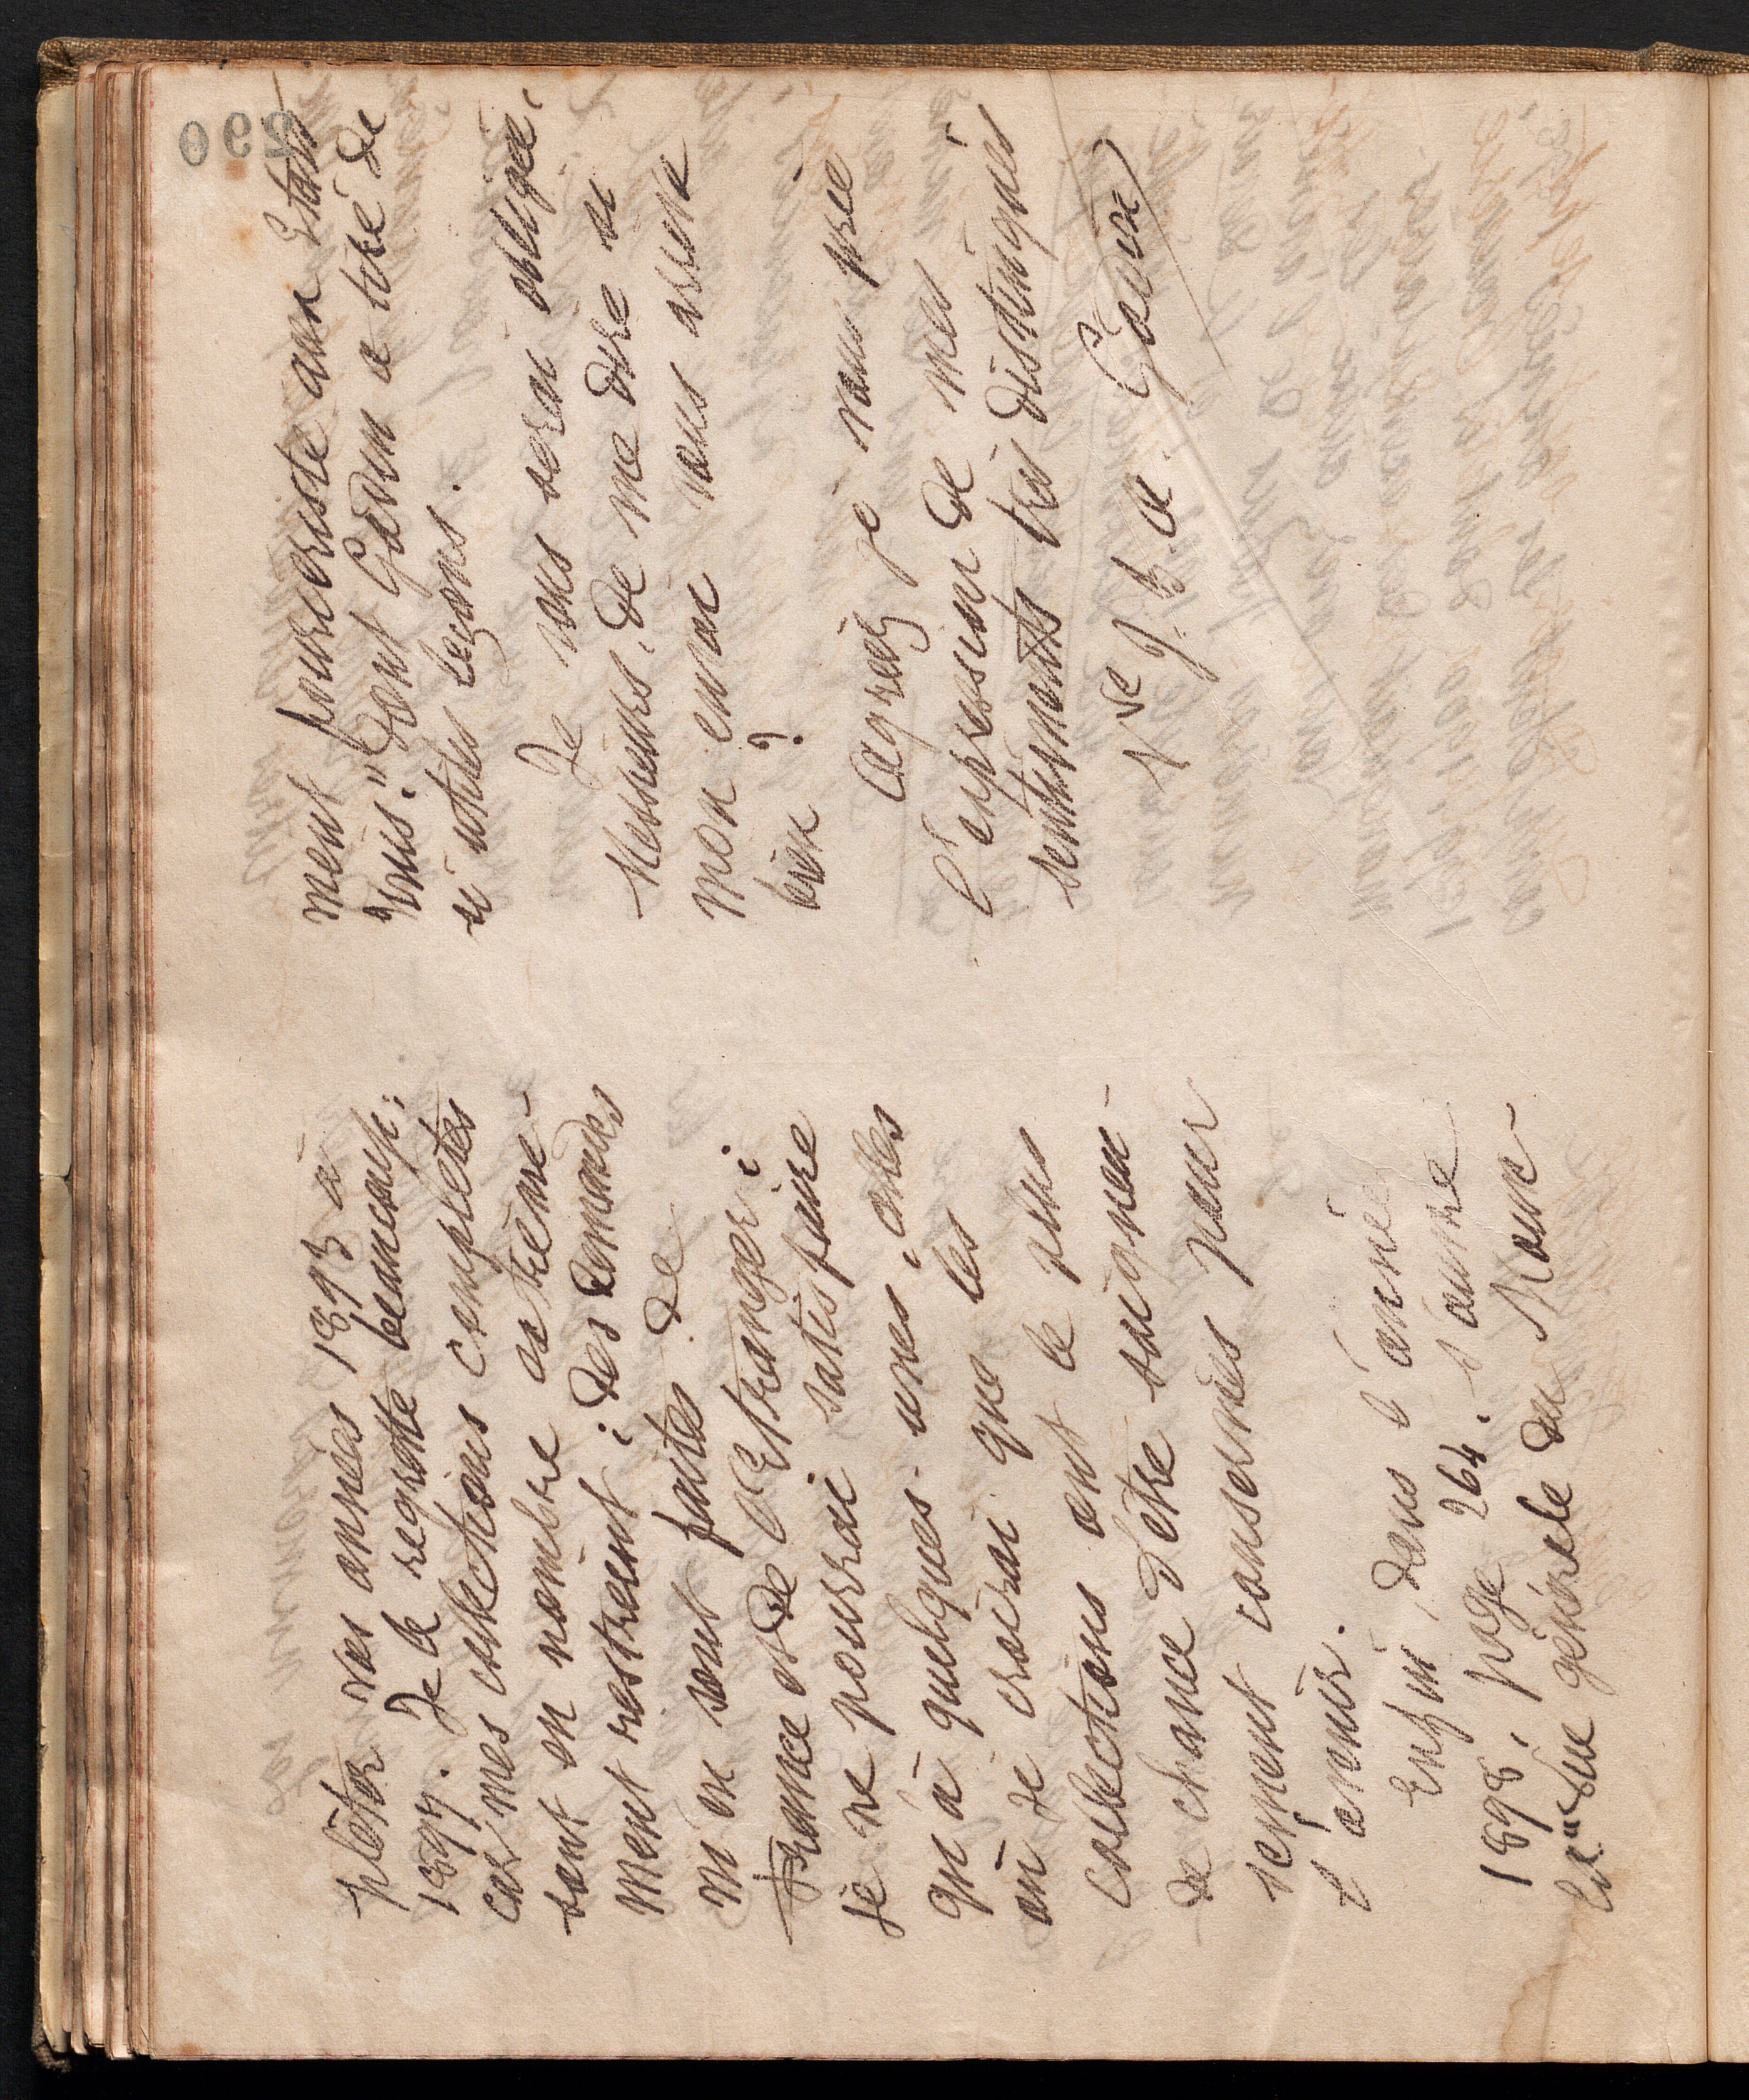 pléter vos années 1893 à
1897. Je le regrette beaucoup;
car mes collections complètes
sont en nombre extrême-
ment restreint; des demandes
m'en sont faites de
France et de l'Etranger;
je ne pourrai satisfaire
qu'à quelques-unes, celles
où je croirai que les
collections ont le plus
de chance d'être soigneu-
sement conservées pour
l'avenir.
Enfin, dans l'année
1898, page 264, s'ouvre
la "Vue générale du Mouve-
ment pouvoriste aux Etats
Unis" dont Godin a tiré de
si utiles leçons.
Je vous serai obligée,
Messieurs, de me dire si
mon envoi vous arrive
bien?
Agréez je vous prie
l'expression de mes
sentiments très distingués
Vve J. B. A. Godin
290